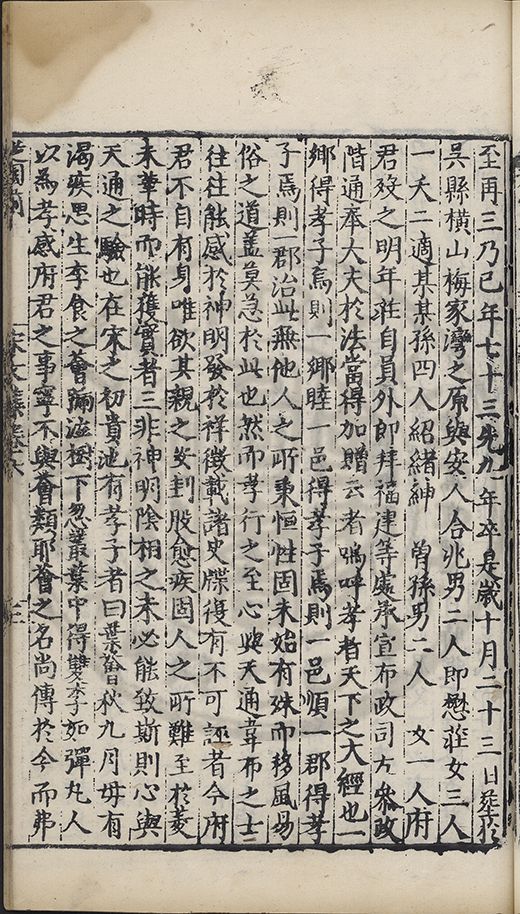 至再三乃已年七十三先九年卒是歲十月二十三日葬於
吳縣橫山梅家灣之原與安人合兆男二人即懋莊女三人
一夭二適某某孫四人紹緒紳 曾孫男二人 女一人府
君歿之明年莊自員外郎拜福建等處承宣布政司左叅政
階通奉大夫於法當得加贈云者嗚呼孝者天下之大經也一
鄉得孝子焉則一鄉睦一邑得孝子焉則一邑順一郡得孝
子焉則一郡治此無他人之所秉恒性固未始有殊而移風易
俗之道盖莫急於此也然而孝行之至心與天通韋布之士
往往能感於神明發於祥徵載諸史牒復有不可誣者今府
君不自有身唯欲其親之安刲股愈疾固人之所難至於菱
未華時而能獲實者三非神明陰相之未必能致斯則心與
天通之驗也在宋之初貴池有孝子者曰葉薈秋九月母有
渴疾思生李食之薈踊泣樹下忽叢葉中得雙李如彈丸人
以為孝感府君之事寧不與薈類耶薈之名尚傳於今而弗